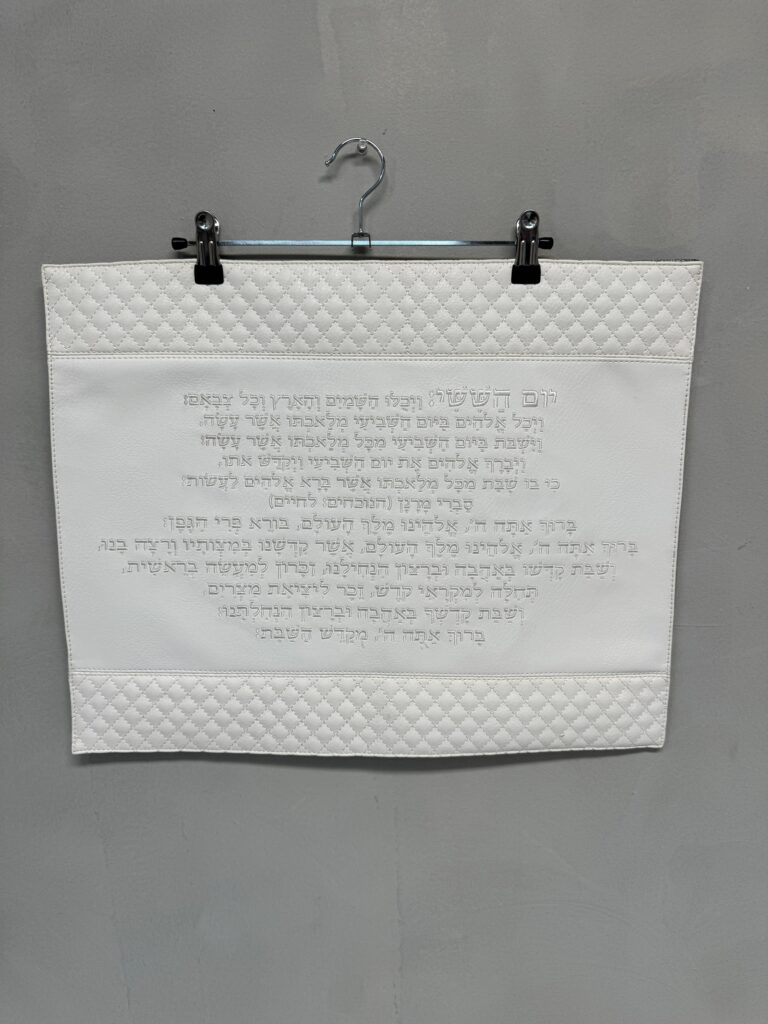 יוֹם הַשִּׁשִּׁי: וַיְכֻלּוּ הַשָּׁמַיִם וְהָאָרֶץ וְכָל צְבָאָם:
וַיְכַל אֱלֹהִים בַּיּוֹם הַשְּׁבִיעִי מְלַאכְתּוֹ אֲשֶׁר עָשָׂה,
וַיִּשְׁבֹּת בַּיּוֹם הַשְּׁבִיעִי מִכָּל מְלַאכְתּוֹ אֲשֶׁר עָשָׂה:
וַיְבָרֶךְ אֱלֹהִים אֶת יוֹם הַשְּׁבִיעִי וַיְקַדֵּשׁ אֹתוֹ,
כִּי בוֹ שָׁבַת מִכָּל מְלַאכְתּוֹ אֲשֶׁר בָּרָא אֱלֹהִים לַעֲשׂוֹת:
סַבְרִי מָרָנָן (הנוכחים: לחיים)
בָּרוּךְ אַתָּה ה', אֱלֹהֵינוּ מֶלֶךְ הָעוֹלָם, בּוֹרֵא פְּרִי הַגָּפֶן:
בָּרוּךְ אַתָּה ה', אֱלֹהֵינוּ מֶלֶךְ הָעוֹלָם, אֲשֶׁר קִדְּשָׁנוּ בְּמִצְוֹתָיו וְרָצָה בָנוּ,
וְשַׁבַּת קָדְשׁוֹ בְּאַהֲבָה וּבְרָצוֹן הִנְחִילָנוּ, זִכָּרוֹן לְמַעֲשֵׂה בְרֵאשִׁית,
תְּחִלָּה לְמִקְרָאֵי קֹדֶשׁ, זֵכֶר לִיצִיאַת מִצְרַיִם,
וְשַׁבַּת קָדְשְׁךָ בְּאַהֲבָה וּבְרָצוֹן הִנְחַלְתָּנוּ:
בָּרוּךְ אַתָּה ה', מְקַדֵּשׁ הַשַּׁבָּת: